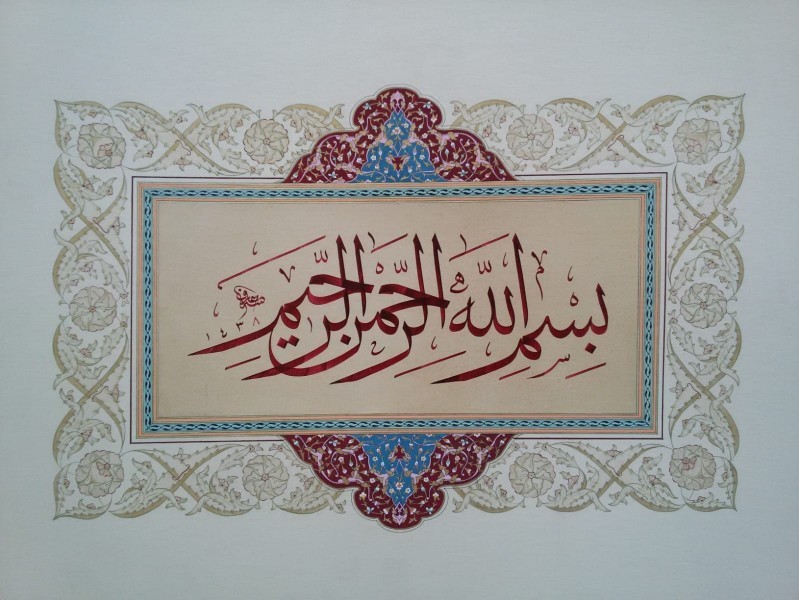 بِسْمِ اللّٰهِ الرَّحْمٰنِ الرَّحِيمِ
١٤٣٨